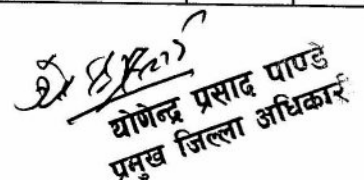 योगेन्द्र प्रसाद पाण्डे
प्रमुख जिल्ला अधिकार